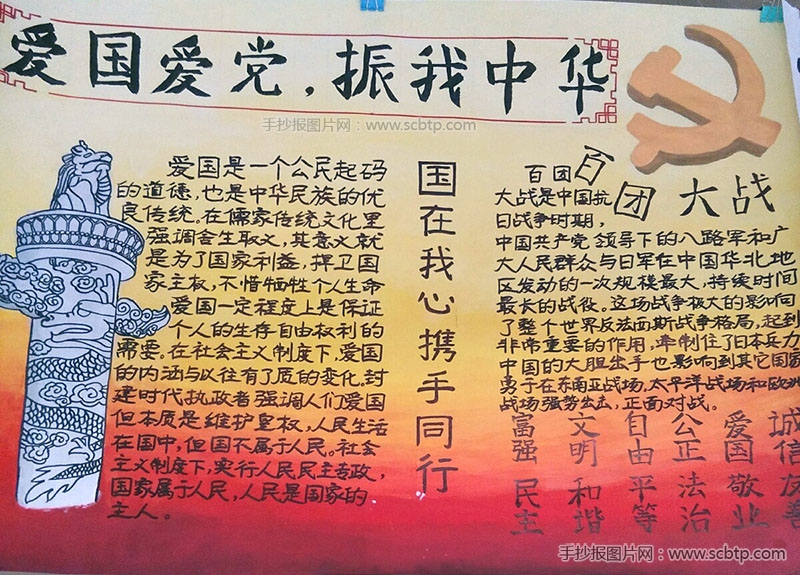 爱国爱党，振我中华
手抄报图片网：www.scbtp.com
爱国是一个公民起码
的道德，也是中华民族的优
良传统。在儒家传统文化里
强调舍生取义，其意义就
是为了国家利益，捍卫国
家主权，不惜牺牲个人生命
爱国一定程度上是保证
个人的生存自由权利的
需要。在社会主义制度下，爱国
的内涵与以往有了质的变化。封
建时代执政者强调人们爱国
但本质是维护皇权，人民生活
在国中，但国不属于人民。社会
主义制度下，实行人民民主专政，
国家属于人民，人民是国家的
主人。
国在我心携手同行
百团大战
百团
大战是中国抗
日战争时期，
中国共产党领导下的八路军和广
大人民群众与日军在中国华北地
区发动的一次规模最大，持续时间
最长的战役。这场战争极大的影响
了整个世界反法西斯战争格局，起到
非常重要的作用，牵制住了日本兵力
中国的大胆出手也影响到其它国家
勇于在东南亚战场，太平洋战场和欧洲
战场强势出击，正面对战。
富强 民主
文明 和谐
自由 平等
公正 法治
爱国 敬业
诚信 友善
手抄报图片网：www.scbtp.com